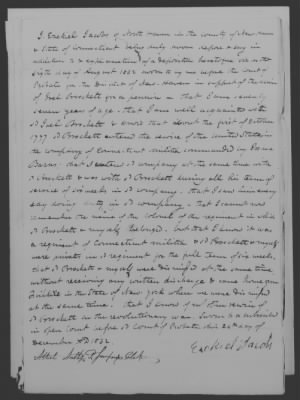 I Ezekiel Jacobs of North Haven in the county of New Haven
& State of Connecticut being duly sworn depose & say in
addition & explanation of a deposition heretofore on the
sixth day of August 1832 sworn to by me before the Court of
Probate for the District of New Haven in support of the claim
of Brockett for a pension - that I am seventy
seven years of age - that I am well acquainted with
Brockett & know that about the first of October
1777 Brockett entered the service of the United States in
the company of Connecticut militia commanded by
Barns - that I entered company at the same time with
Brockett & was with Brockett during all his term of
service of six weeks in company - that I saw him every
day doing duty in company - that I cannot now
remember the name of the Colonel of the regiment in which
Brockett & myself belonged but that I know it was
a regiment of Connecticut militia & Brockett & myself
were privates in regiment for the full term of six weeks,
that Brockett & myself were dismissed at the same time
without receiving any written discharge & came home from
in the State of New York where we were dismissed
at the same time; that I know of no other service of
Brockett in the revolutionary war. Sworn to & subscribed
in Open Court before Court of Probate this 24th day of
December AD. 1832.
Ezekiel Jacobs
Attest Clerk